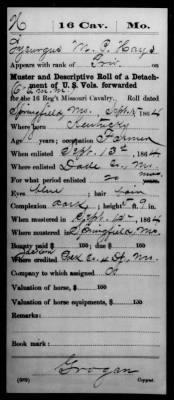 H | 16 Cav. | Mo.
Lycurgus M. C. Hays
Appears with rank of Priv. on
Muster and Descriptive Roll of a Detach-
ment of U. S. Vols. forwarded
for the 16 Reg't Missouri Cavalry. Roll dated
Springfield Mo. Sept. 1864
Where born Kentucky
Age years; occupation Farmer
When enlisted Sept. 13, 1864
Where enlisted Dade Co. Mo.
For what period enlisted 20 mos.
Eyes blue; hair
Complexion dark; height 5 ft. 9 in.
When mustered in Sept. 1864
Where mustered in Springfield, Mo.
Bounty paid $ 100; due $ 100
Where credited Mo.
Company to which assigned
Valuation of horse, $ 100
Valuation of horse equipments, $ 100
Remarks:
Book mark:
Grogan
Copyist.